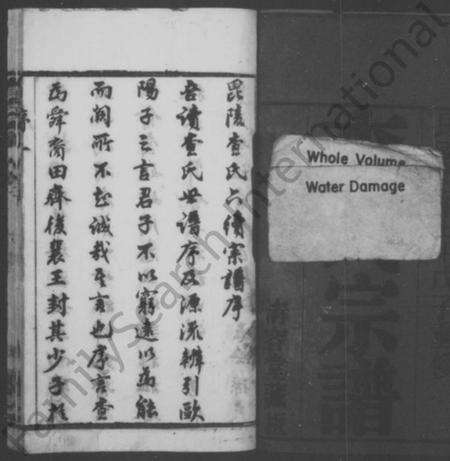 毘陵查氏六續宗譜序
吾讀查氏世譜序及源流辨引歐
陽子之言君子不以窮遠以為能
而闕所不知誠哉是言也序言查
為舜裔田齊後襄王封其少子於
Whole Volume
Water Damage
宗譜
FamilySearch International